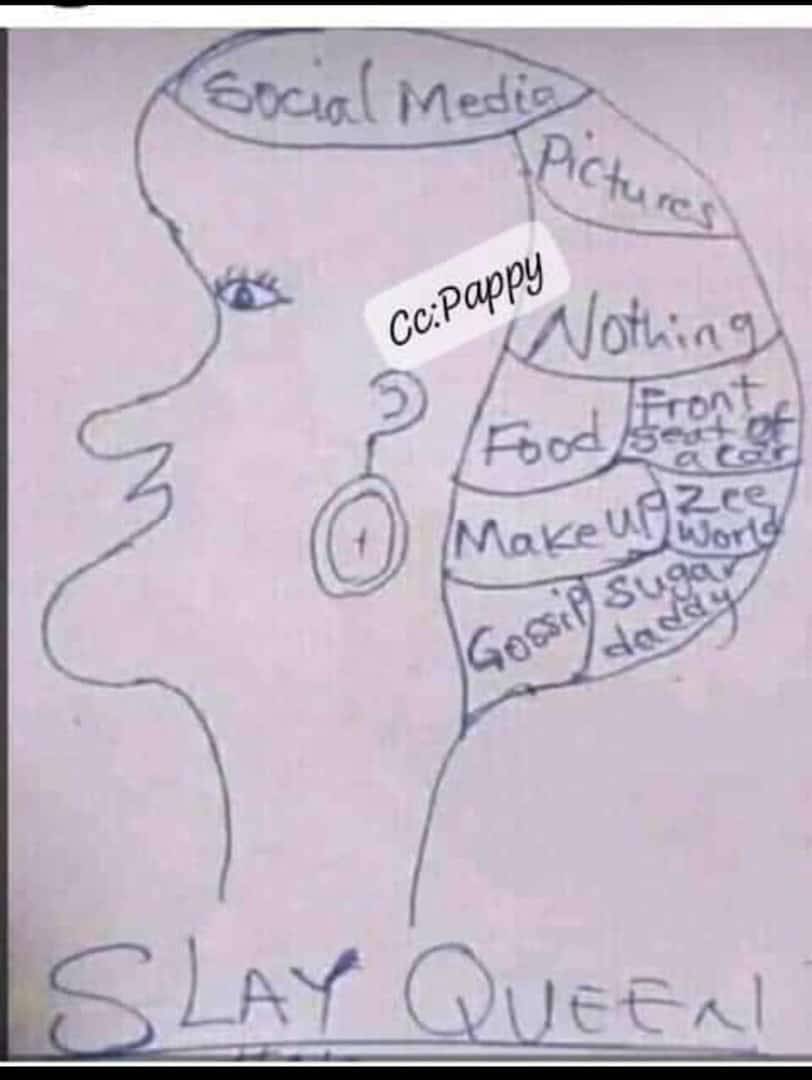 Social Media
Pictures
Cc:Pappy
Nothing
Food
Front
Seat of
a car
Make up
Zee
World
Gossip
Sugar
daddy
SLAY QUEEN